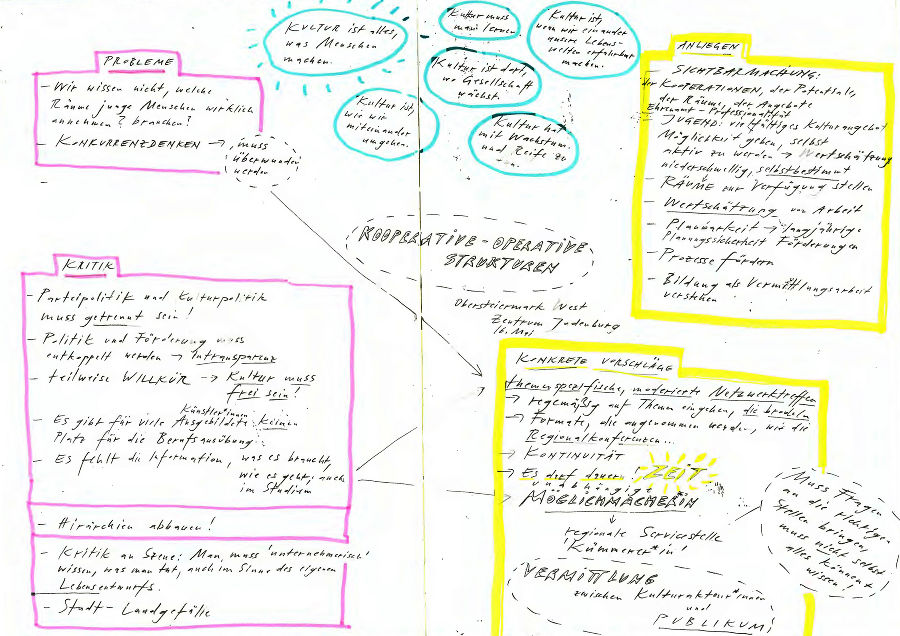 KULTUR ist alles,
was Menschen
machen.
Kultur muss
man lernen.
Kultur ist,
wenn wir einander
unsere Lebens-
welten erfahrbar
machen.
Kultur ist dort,
wo Gesellschaft
wächst.
Kultur ist,
wie wir
miteinander
umgehen.
Kultur hat
mit Wachstum
und Reife zu
tun.
PROBLEME
- Wir wissen nicht, welche
Räume junge Menschen wirklich
annehmen? brauchen?
- KONKURRENZDENKEN → muss
überwunden
werden
ANLIEGEN
- SICHTBARMACHUNG:
der KOOPERATIONEN, der Potentiale,
der Räume, der Angebote
Ehrenamt - Professionalität
- JUGEND: vielfältiges Kulturangebot
Möglichkeit geben, selbst
aktiv zu werden → Wertschätzung
niederschwellig, selbstbestimmt
- RÄUME zur Verfügung stellen
- Wertschätzung von Arbeit
- Planbarkeit → langjährige
Planungssicherheit Förderungen
- Prozesse fördern
- Bildung als Vermittlungsarbeit
verstehen
KOOPERATIVE - OPERATIVE
STRUKTUREN
Obersteiermark West
Zentrum Judenburg
16. Mai
KRITIK
- Parteipolitik und Kulturpolitik
muss getrennt sein!
- Politik und Förderung muss
entkoppelt werden → Intransparenz
- teilweise WILLKÜR → Kultur muss
frei sein!
Künstler*innen
- Es gibt für viele Ausgebildete keinen
Platz für die Berufsausübung
- Es fehlt die Information, was es braucht,
wie es geht, auch
im Studium
- Hirarchien abbauen!
- Kritik an Szene: Man muss 'unternehmerisch'
wissen, was man tut, auch im Sinne des eigenen
Lebensentwurfs.
- Stadt - Landgefälle
KONKRETE VORSCHLÄGE
themenspezifische, moderierte Netzwerktreffen
→ regemäßig auf Themen eingehen, die brodeln
→ Formate, die angenommen werden, wie die
Regionalkonferenzen...
→ KONTINUITÄT
→ Es darf dauern! ZEIT
unabhängige
→ MÖGLICHMACHERIN
regionale Servicestelle
'Kümmerer*in'
Muss Fragen
an die richtigen
Stellen bringen,
muss nicht selbst
alles können/
wissen!
VERMITTLUNG
zwischen Kulturakteur*innen
und
PUBLIKUM!